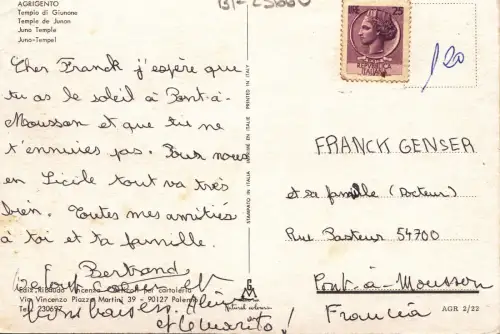 AGRIGENTO
Tempio di Giunone
Temple de Junon
Juno Temple
Juno-Tempel
Cher Franck j'espère que
tu as le soleil à Pont-à-
Mousson et que tu ne
t'ennuies pas. Pour nous
en Sicile tout va très
bien. Toutes mes amitiés
à toi et ta famille.
Bertrand
De tout coeur et
bons baisers.
et Co
Ediz. Ribaudo Vincenzo per cartoleria
Via Vincenzo Piazza Martini 39 - 90127 Palermo
Tel. 230697
STAMPATO IN ITALIA IMPRIMÉ EN ITALIE PRINTED IN ITALY
25
REPUBBLICA
ITALIANA
120
FRANCK GENSER
et sa famille (Docteur)
Rue Pasteur 54700
Pont-à-Mousson
Francia
AGR 2/22